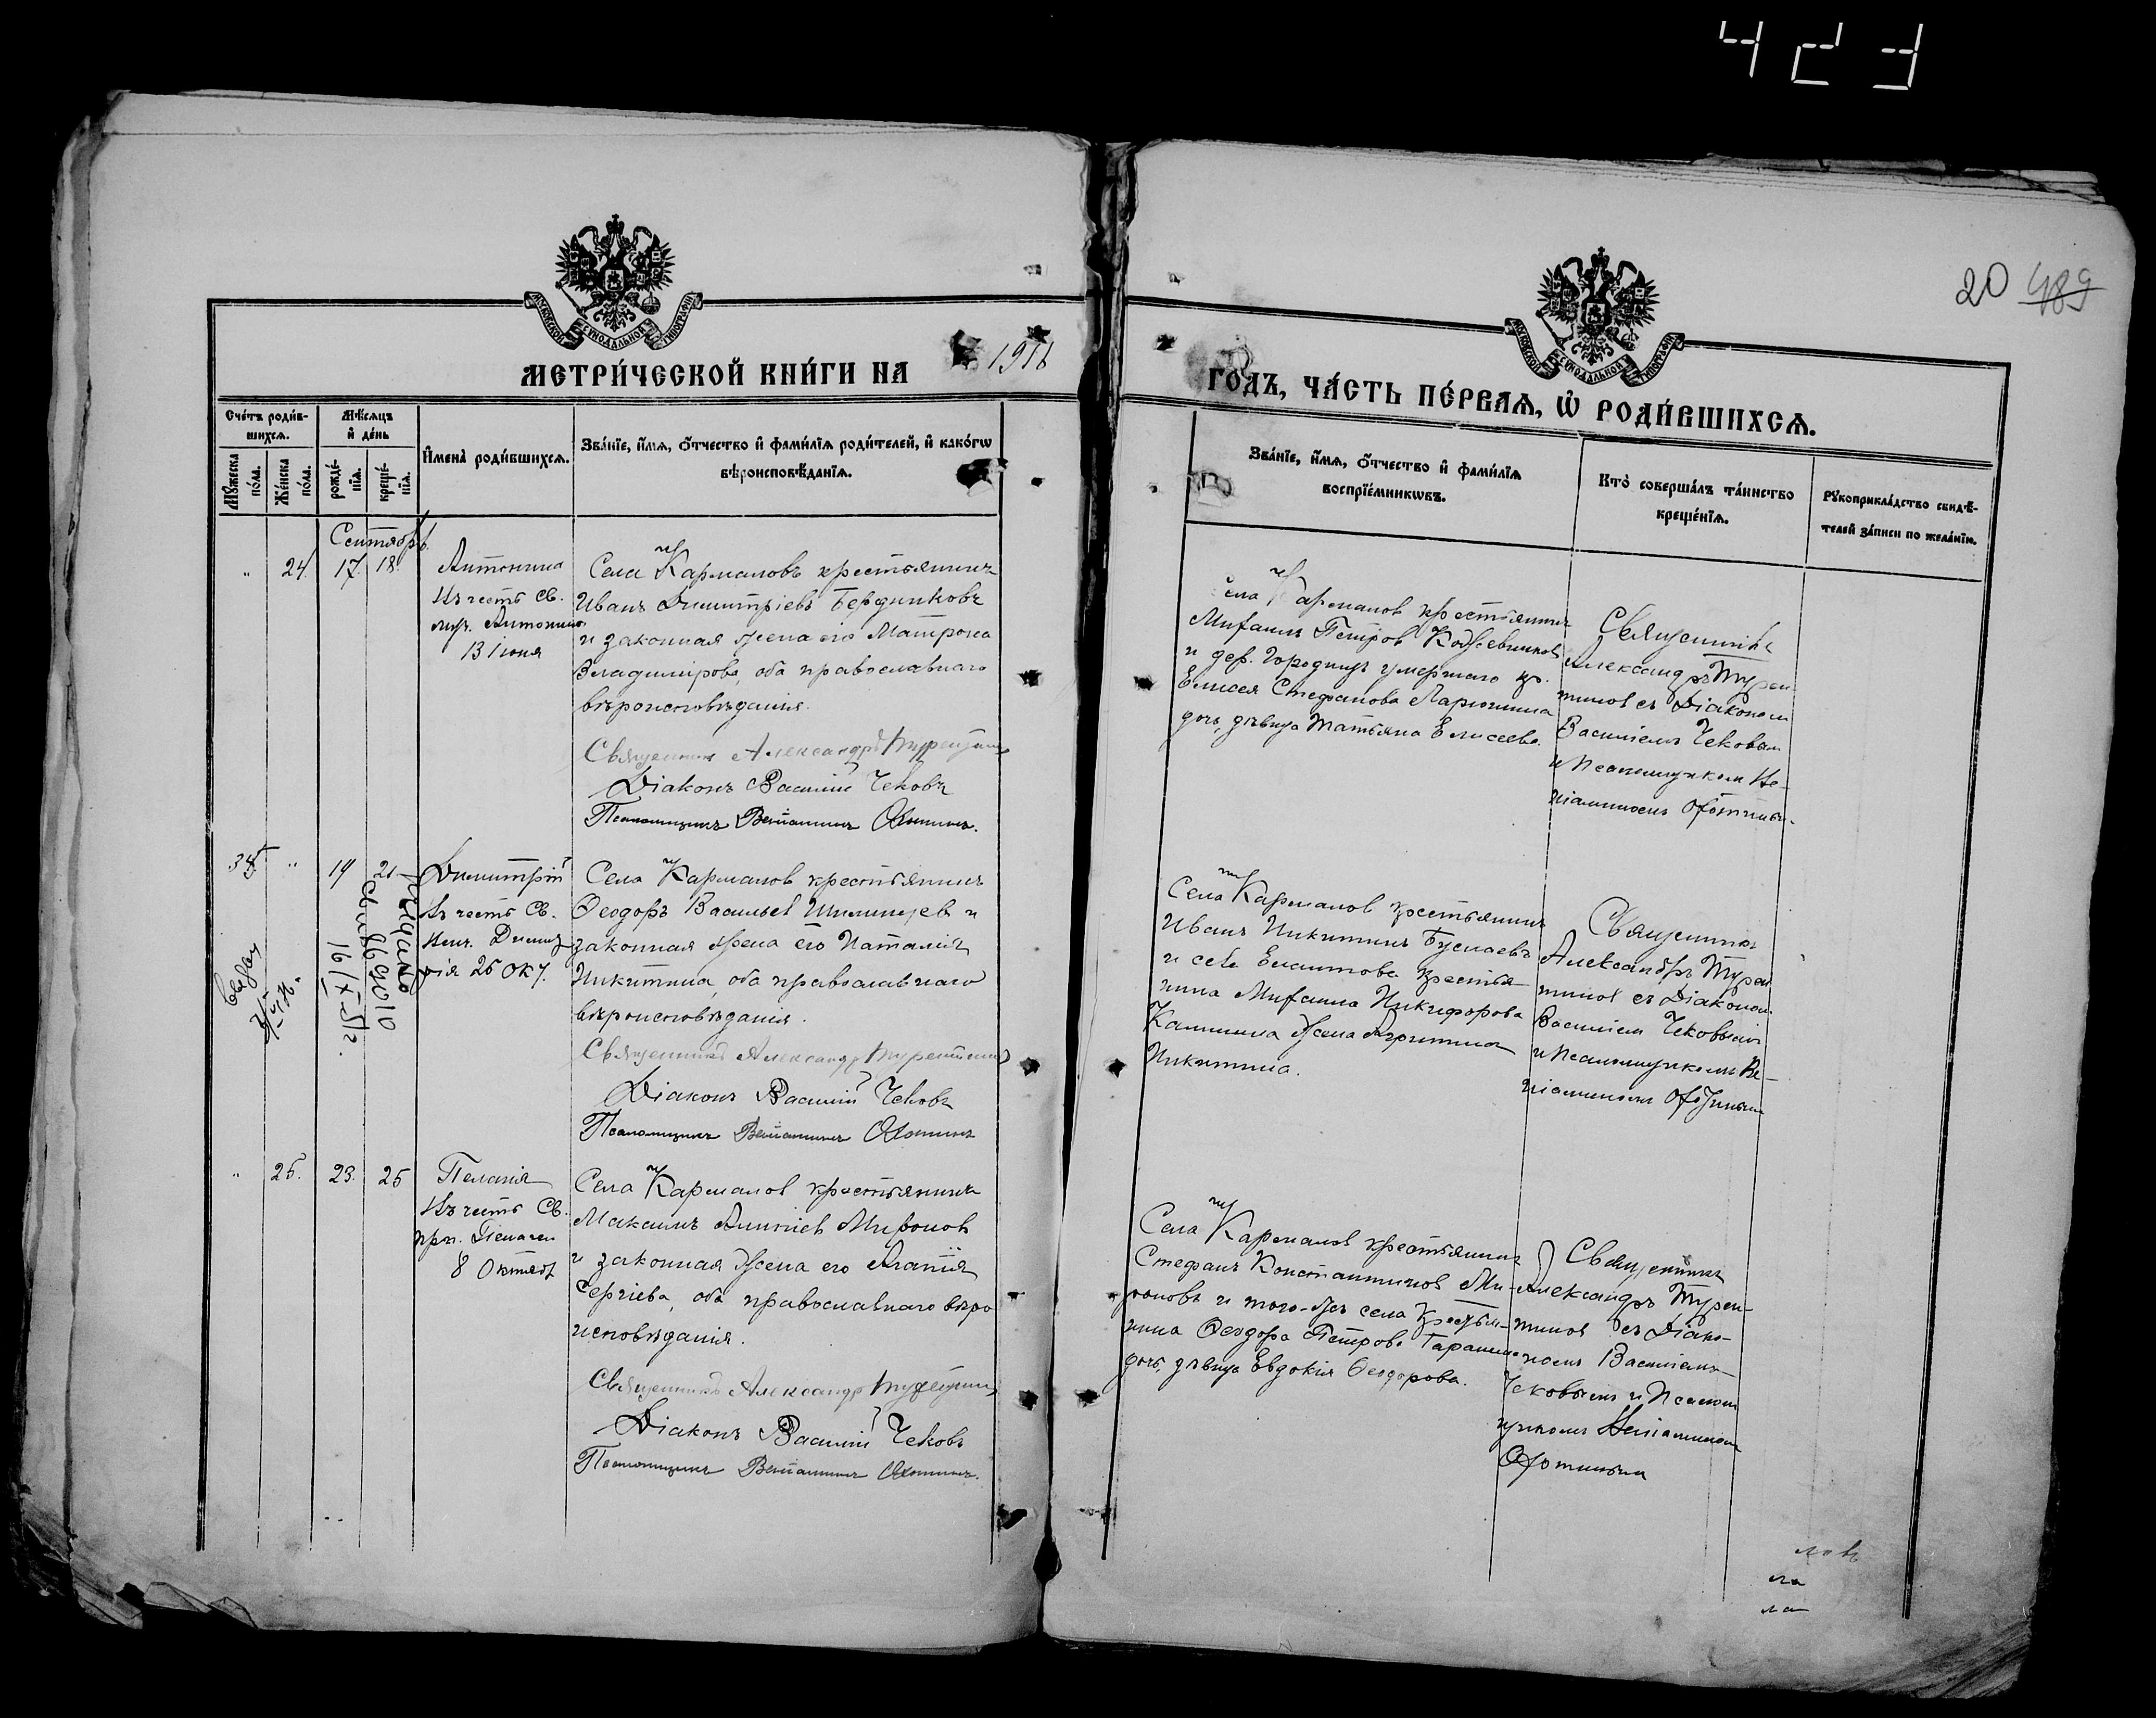 423
20 489
МОСКОВСКОЙ СУНОДАЛЬНОЙ ТИПОГРАФІИ
МОСКОВСКОЙ СУНОДАЛЬНОЙ ТИПОГРАФІИ
МЕТРИ́ЧЕСКОЙ КНИ́ГИ НА 1916
ГОДЪ, ЧА́СТЬ ПЕ́РВАѦ, Ѡ РОДИ́ВШИХСѦ.
Сче́тъ роди́в-
шихсѧ.
Мꙋ́жеска
по́ла.
Же́нска
по́ла.
Мѣ́сѧцъ
и҆ де́нь
рожде́-
нїѧ.
креще́-
нїѧ.
И҆мена̀ роди́вшихсѧ.
Зва́нїе, и҆́мѧ, ѻ҆́тчество и҆ фами́лїѧ роди́телей, и҆ како́гѡ
вѣроисповѣ́данїѧ.
Зва́нїе, и҆́мѧ, ѻ҆́тчество и҆ фами́лїѧ
воспрїе́мникѡвъ.
Кто̀ соверша́лъ та́инство
креще́нїѧ.
Рꙋкоприкла́дство свидѣ́-
телей за́писи по жела́нїю.
Сентябрь
" 24. 17. 18.
Антонина
въ честь св.
муч. Антонины
13 іюня
Села Кармановъ крестьянинъ
Иванъ Димитріевъ Бердниковъ
и законная жена его Матрона
Владимірова, оба православнаго
вѣроисповѣданія.
Священникъ Александръ Турентинов
Діаконъ Василій Чековъ
Псаломщикъ Веніаминъ Охотинъ.
Села Карманов крестьянинъ
Михаилъ Петров Кожевников
и дер. Городищъ умершаго кр.
Елисея Стефанова Ларюшина
дочь, дѣвица Татьяна Елисеева.
Священникъ
Александръ Турен-
тинов съ Діаконом
Василіемъ Чековым
и Псаломщиком Ве-
ніаминомъ Охотиным.
34 " 19 21
Димитрій
въ честь св.
вмч. Димит
рія 26 окт.
Выдано
свид
16/X-51г.
Села Карманов крестьянинъ
Ѳеодоръ Васильев и
законная жена его Наталія
Никитина, оба православнаго
вѣроисповѣданія.
Священникъ Александр Турентинов
Діаконъ Василій Чековъ
Псаломщикъ Веніаминъ Охотинъ
Села Карманов крестьянинъ
Иванъ Никитинъ Буслаевъ
и села Екатова крестья-
нина Михаила Никифорова
Калинина жена
Никитина.
Священникъ
Александръ Турен
тинов съ Діаконом
Василіем Чековымъ
и Псаломщикомъ Ве-
ніаминомъ Охотиным
" 25. 23. 25
Пелагія
въ честь св.
прп. Пелагеи
8 Октябр
Села Карманов крестьянинъ
Миронов
и законная жена его Агапія
Сергіева, оба православнаго вѣро
исповѣданія.
Священникъ Александр Турентинов
Діаконъ Василій Чековъ
Псаломщикъ Веніаминъ Охотинъ.
Села Карманов крестьянинъ
Стефанъ Константинов Ми-
роновъ и того-же села крестья-
нина Ѳеодора Петрова Гаранина
дочь, дѣвица Евдокія Ѳеодорова.
Священникъ
Александръ Турен-
тинов съ Діако-
номъ Василіемъ
Чековымъ и Псалом
щикомъ Веніамином
Охотинымъ